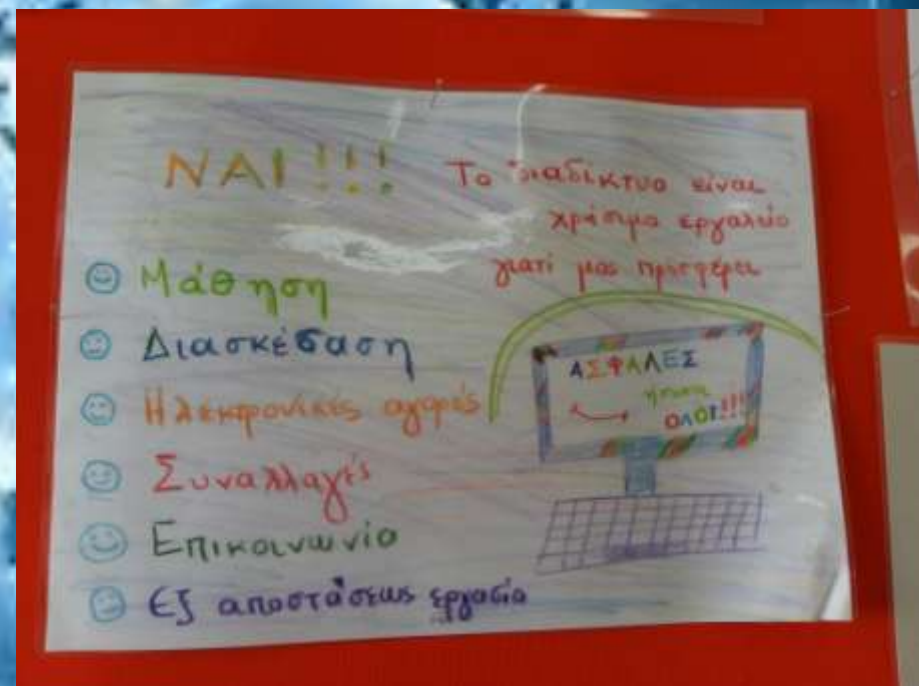 ΝΑΙ!!!
Το διαδίκτυο είναι
χρήσιμο εργαλείο
γιατί μας προσφέρει
Μάθηση
Διασκέδαση
Ηλεκτρονικές αγορές
Συναλλαγές
Επικοινωνία
Εξ αποστάσεως εργασία
ΑΣΦΑΛΕΣ
ΟΛΟΙ!!!